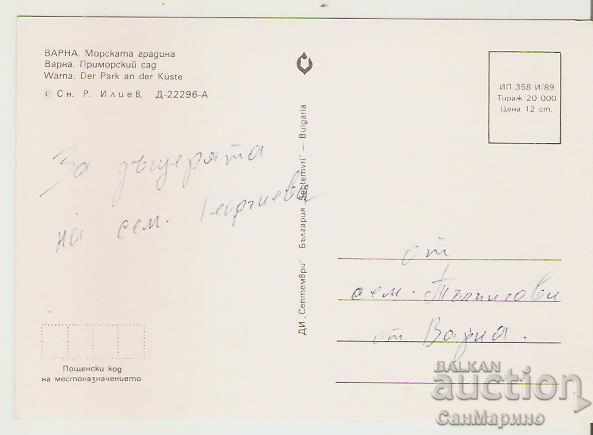 ВАРНА. Морската градина
Варна. Приморский сад
Warna. Der Park an der Küste
© Сн. Р. Илиев, Д-22296-А
ИП 358 И/89
Тираж 20 000
Цена 12 ст.
За дъщерята
на сем. Георгиеви
ДИ „Септември“ България „Septemvri“ — Bulgaria
от
сем.
от Варна.
Пощенски код
на местоназначението
BALKAN
auction
СанМарино